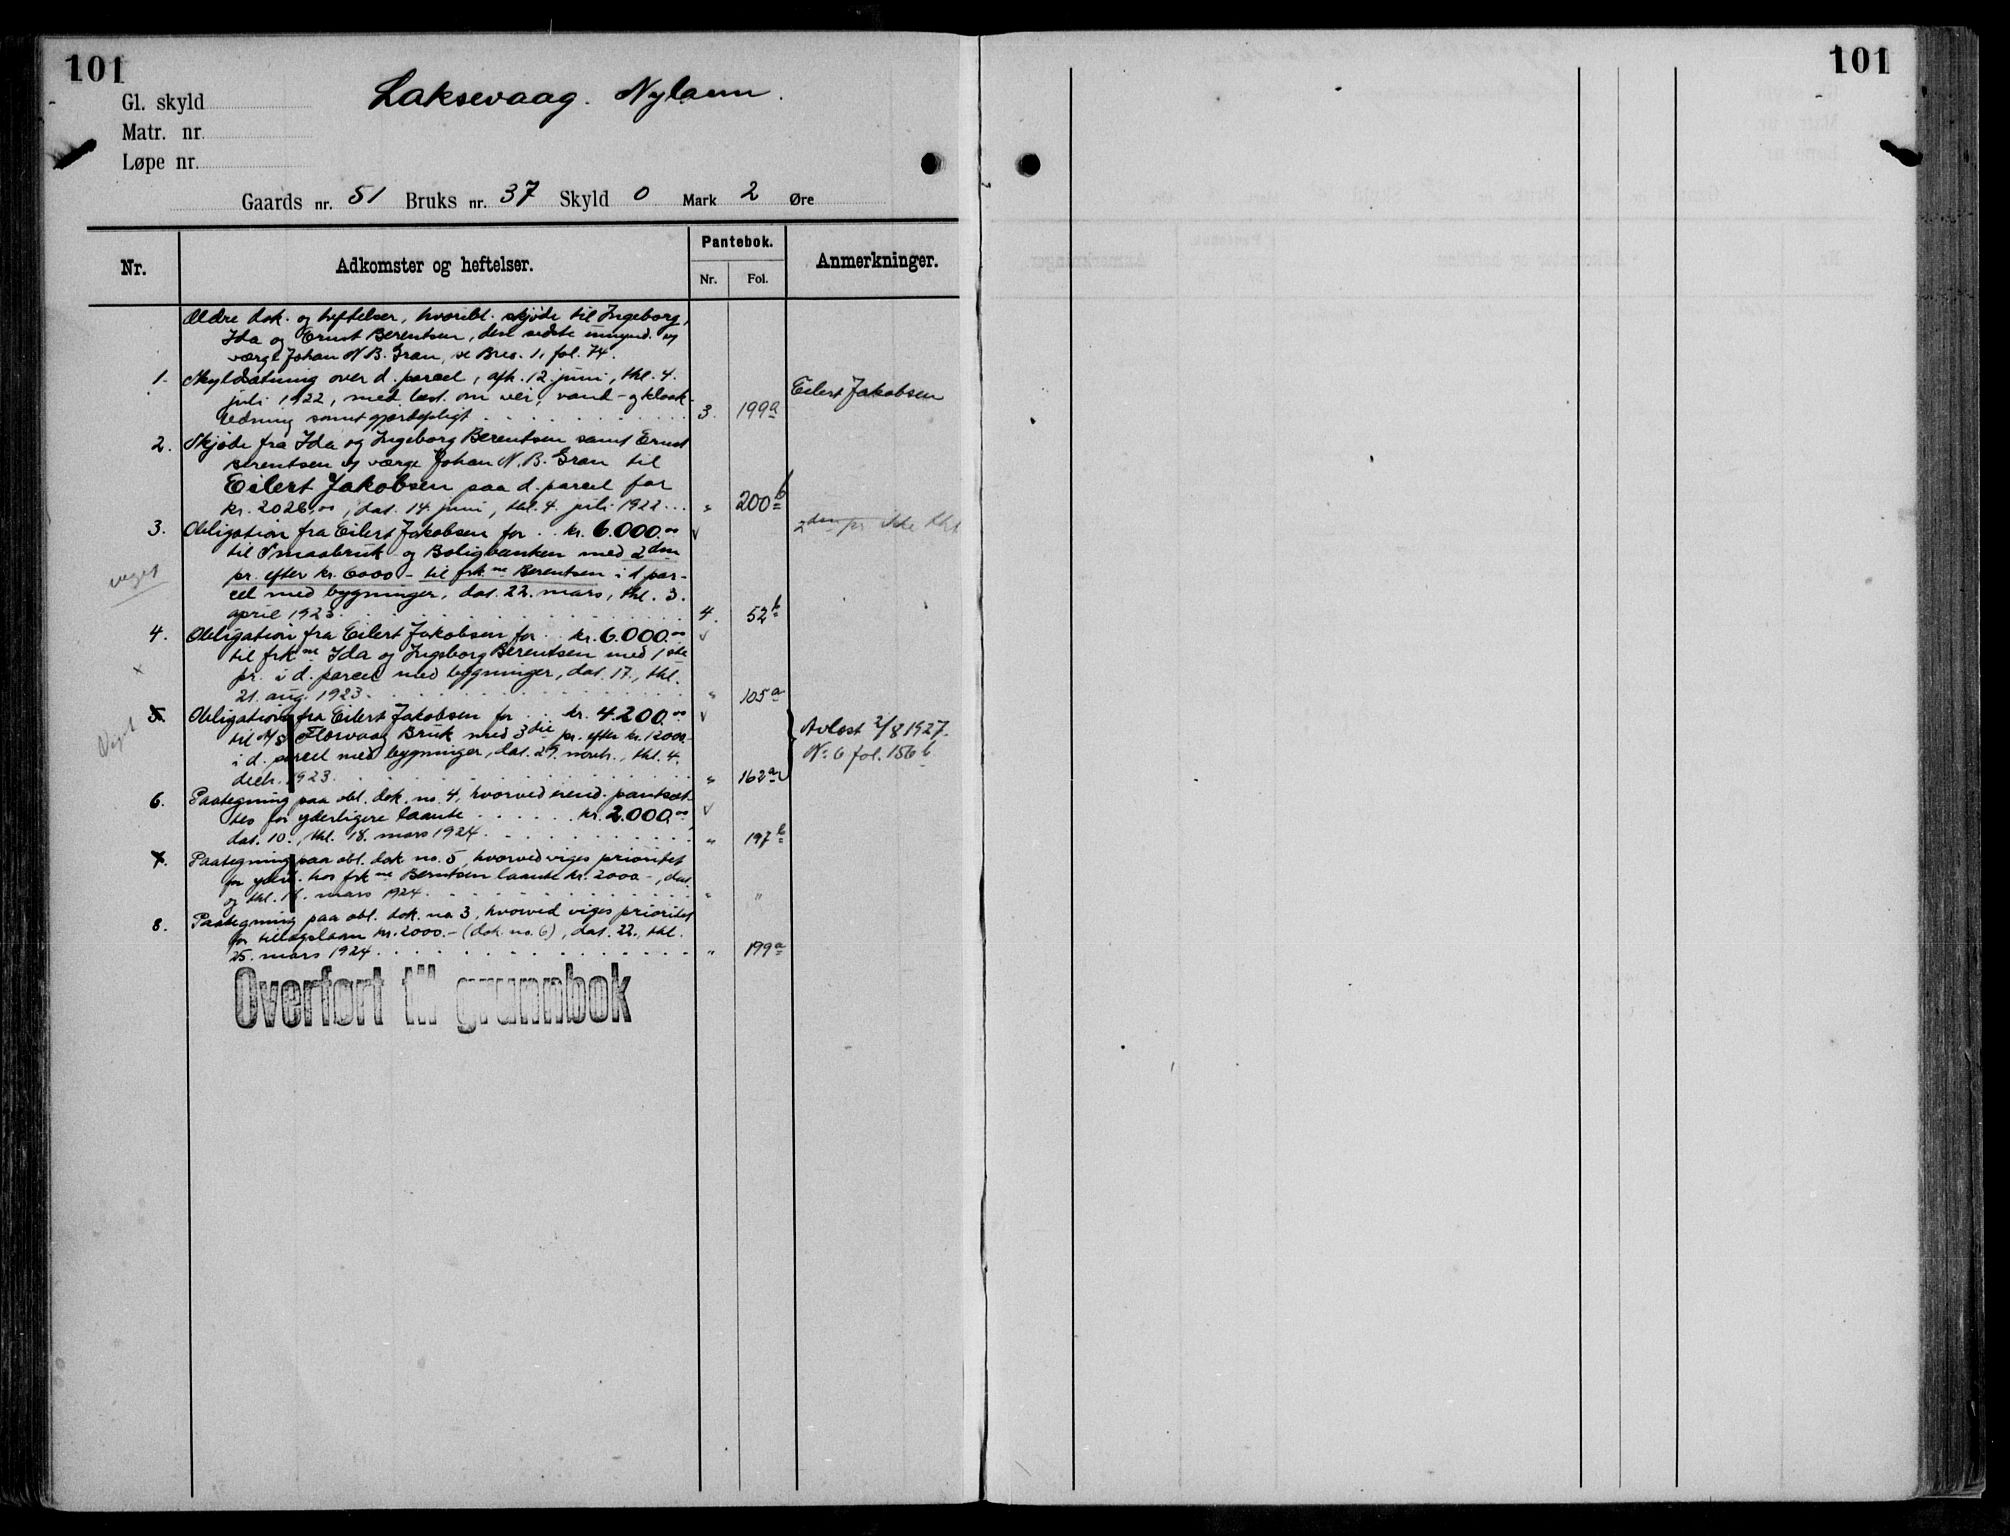 101
101
Laksevaag. Nylaun.
Gl. skyld
Matr. nr.
Løpe nr.
Gaards nr. 51 Bruks nr. 37 Skyld 0 Mark 2 Øre
Nr. Adkomster og heftelser. Pantebok. Anmerkninger.
Nr. Fol.
Ældre dok. og heftelser, hvoribl. skjøde til Ingeborg,
Ida og Ernst Berentsen, den sidste umynd. v/
værge Johan N. B. Gran, se Bres. 1, fol. 74.
1. Skyldsætning over d. parcel, afh. 12. juni, thl. 4.
juli 1922, med best. om vei, vand- og kloak-
ledning samt gjærdepligt . . . 3. 199a Eilert Jakobsen
2. Skjøde fra Ida og Ingeborg Berentsen samt Ernst
Berentsen v/ værge Johan N. B. Gran til
Eilert Jakobsen paa d. parcel for
kr. 2026,00, dat. 14. juni, thl. 4. juli 1922 . . . " 200b
3. Obligation fra Eilert Jakobsen for . . kr. 6.000.00 √ 2den pr ikke thl.
til Smaabruk- og Boligbanken med 2den
pr. efter kr. 6000 - til frkne Berentsen i d. par-
viget
cel med bygninger, dat. 22. mars, thl. 3.
april 1923. . . . 4. 52b
4. Obligation fra Eilert Jakobsen for . . kr. 6.000.00 √
til frkne Ida og Ingeborg Berentsen med 1ste
x pr. i d. parcel med bygninger, dat. 17., thl.
21. aug. 1923. . . . " 105a
5. Obligation fra Eilert Jakobsen for . . kr. 4.200.00 √
Viget til A/S Florvaag Bruk med 3die pr. efter kr. 12000- Avlæst 2/8 1927.
i d. parcel med bygninger, dat. 29. novbr., thl. 4. No 6 fol. 156b.
decbr. 1923. . . . " 162a
6. Paategning paa obl. dok. no. 4, hvorved eiend. pantsæt-
tes for yderligere laante . . . kr. 2.000.00 √
dat. 10., thl. 18. mars 1924. . . . " 197b
7. Paategning paa obl. dok. no. 5, hvorved viges prioritet
for yderl. hos frkne Berntsen laante kr. 2000 -, dat.
og thl. 18. mars 1924. . . . " "
8. Paategning paa obl. dok. no. 3, hvorved viges prioritet
for tillægslaan kr. 2000.- (dok. no. 6), dat. 22., thl.
25. mars 1924. . . . " 199a
Overført til grunnbok